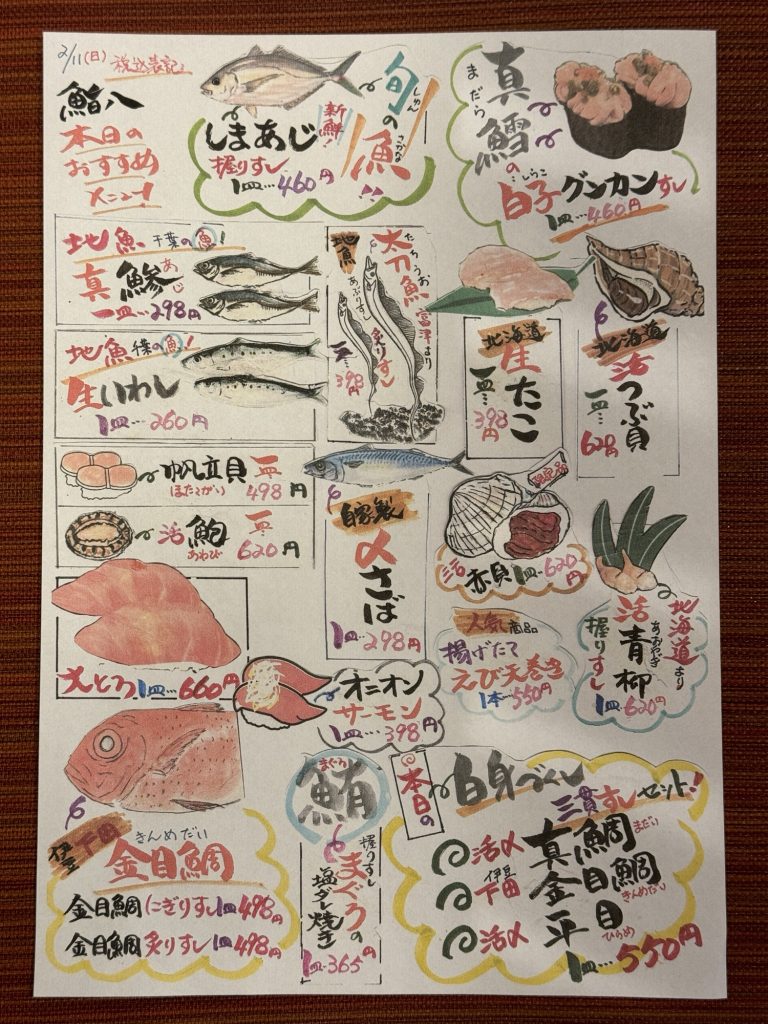 2/11(日) 税込表記
鮨八
本日の
おすすめ
メニュー!
旬の魚!!
しゅん
さかな
新鮮!
しまあじ
握りすし
1皿…460円
まだら
真鱈の
しらこ
白子グンカンすし
1皿…460円
地魚 千葉の魚!
真鯵
あじ
一皿…298円
地魚 千葉の魚!
生いわし
1皿…260円
地魚
たちうお
太刀魚
富津より
あぶりすし
炙りすし
一皿…398円
北海道
生たこ
一皿…398円
北海道
活つぶ貝
一皿…620円
帆立貝 一皿
ほたてがい 498円
活鮑 一皿
あわび 620円
自家製
〆さば
1皿…298円
限定品
活赤貝 1皿…620円
北海道より
あおやぎ
活青柳
握りすし
1皿…620円
人気商品
揚げたて
えび天巻き
1本…550円
大とろ 1皿…660円
オニオン
サーモン
1皿…398円
伊豆下田
きんめだい
金目鯛
金目鯛にぎりすし1皿498円
金目鯛炙りすし1皿498円
まぐろ
鮪
握りすし
まぐろの
塩ダレ焼き
1皿…365円
本日の
白身づくし
三貫すしセット!
活〆 真鯛 まだい
伊豆
下田 金目鯛 きんめだい
活〆 平目 ひらめ
1皿…550円